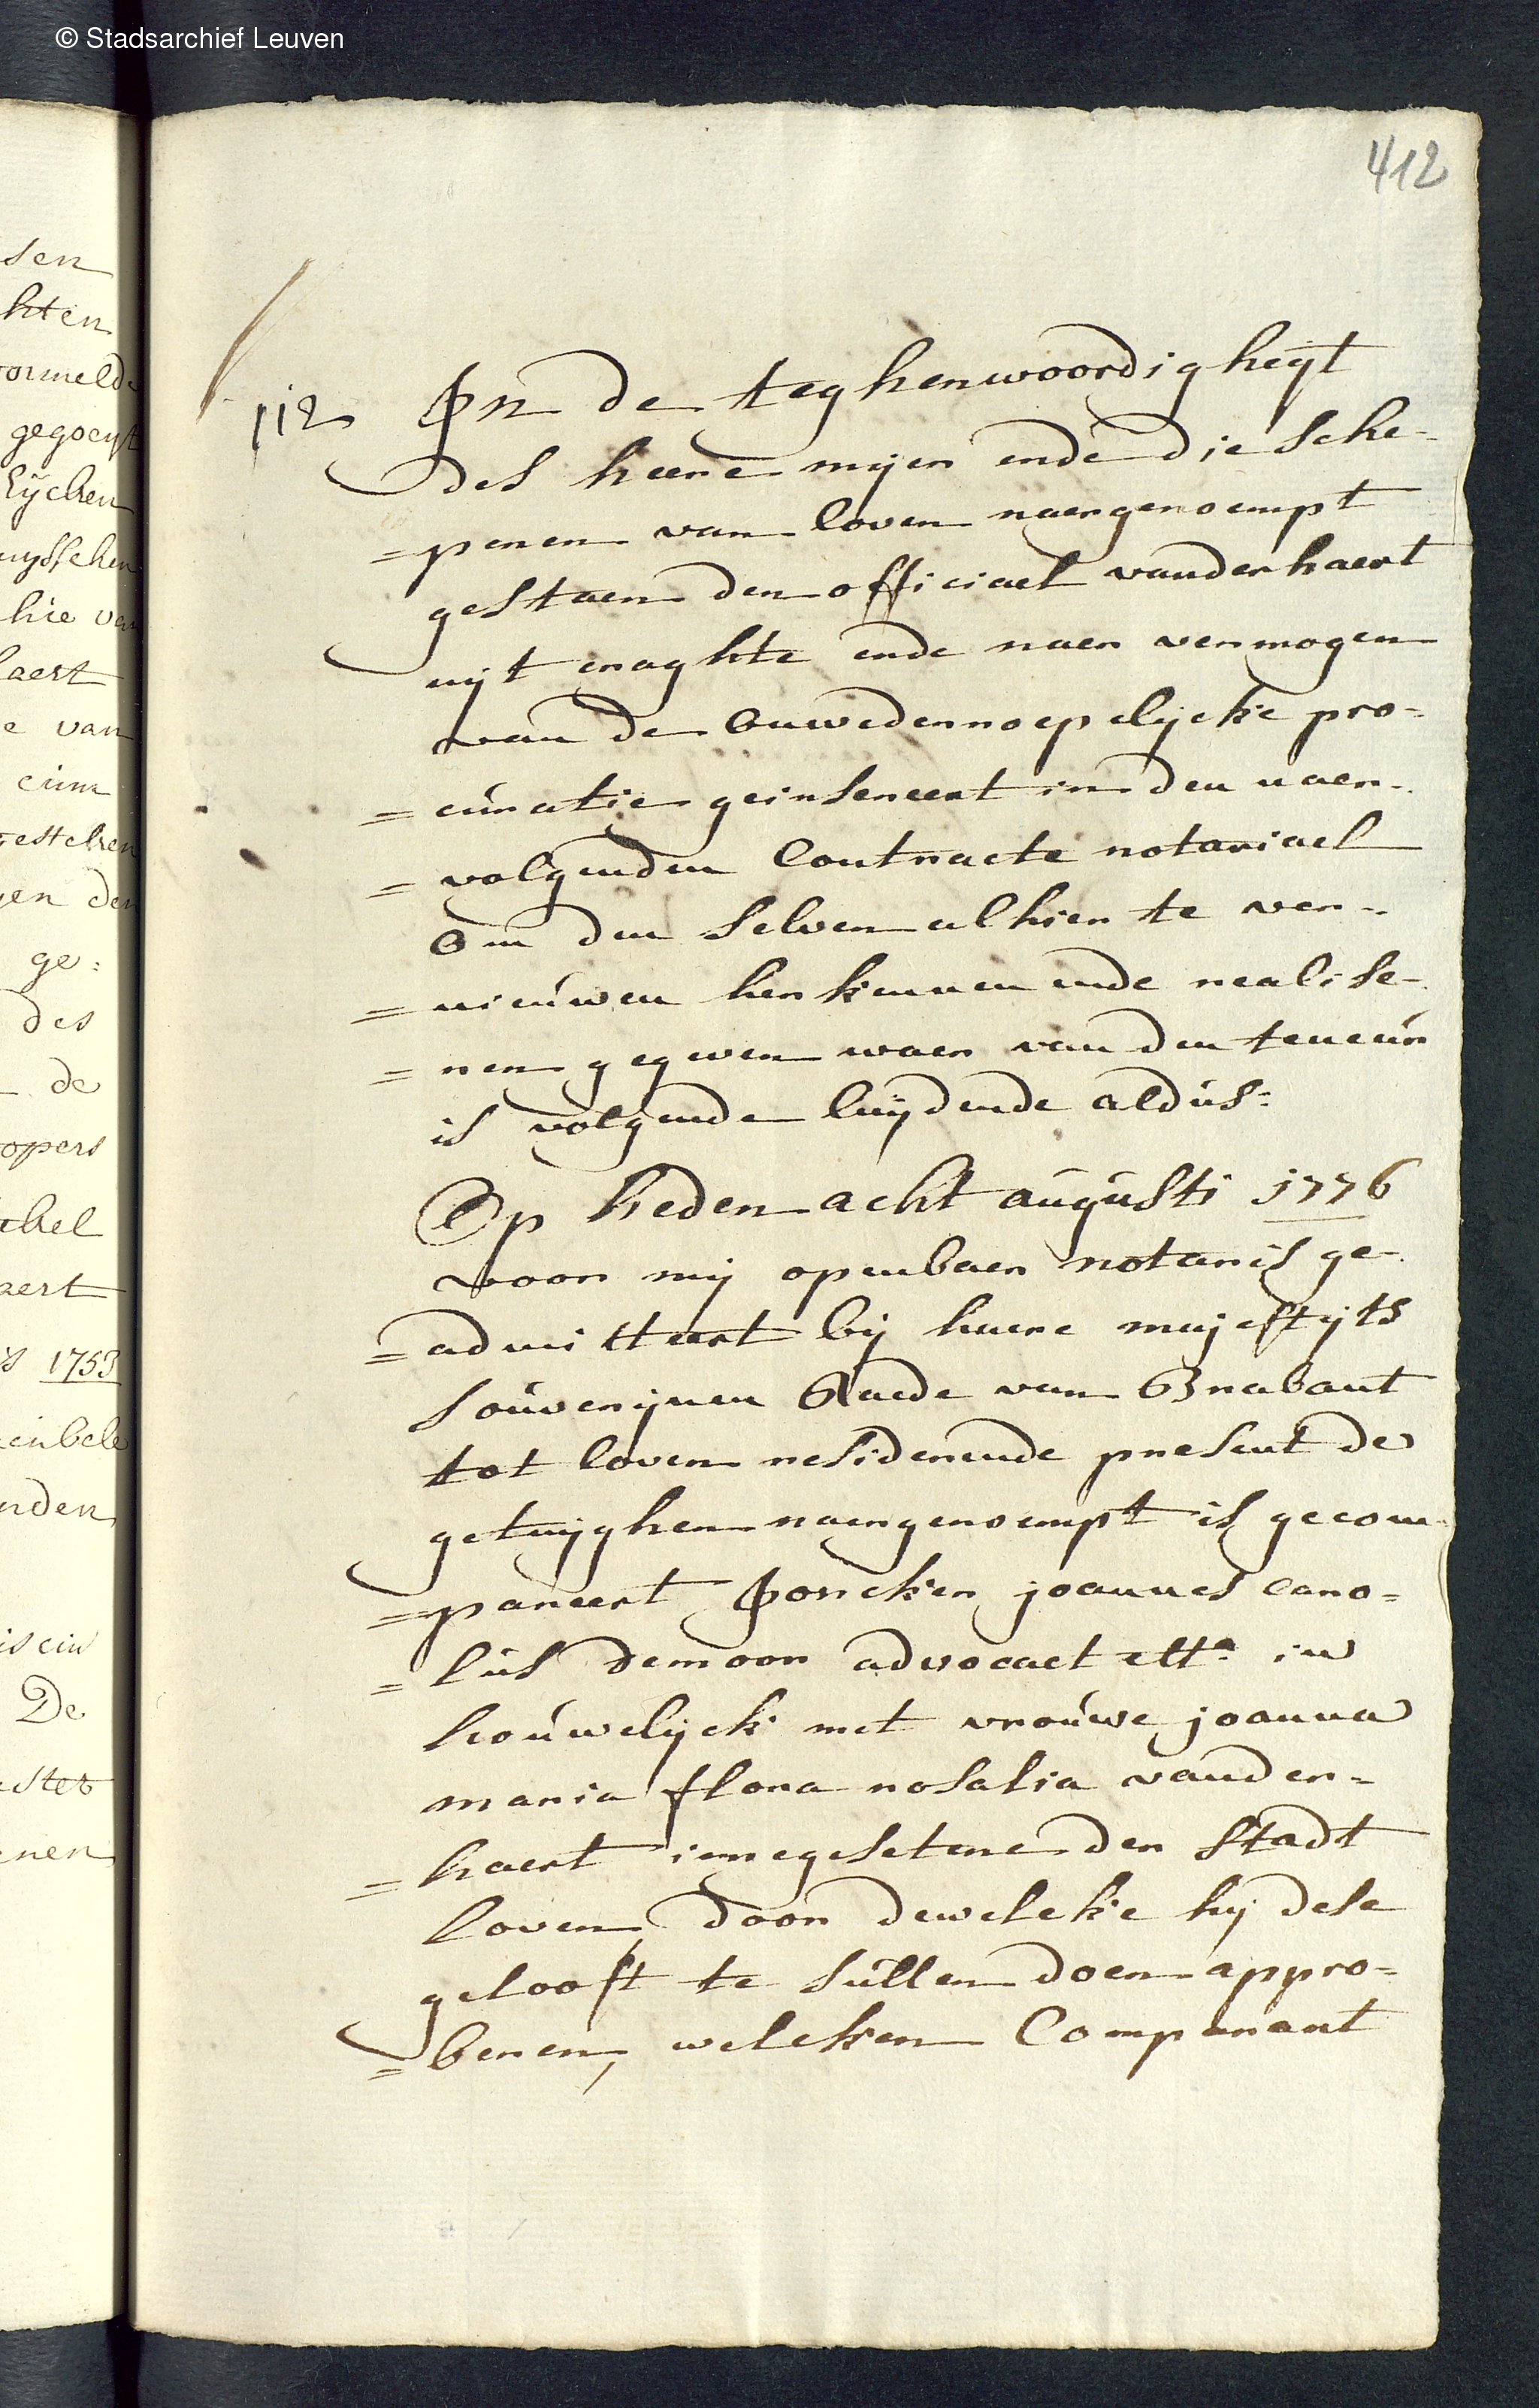 © Stadsarchief Leuven
412
sen
hten
ormelde
gegoeyt
lijcken
uysschen
hie van
aert
e van
cum
estelsen
en den
ge:
des
de
opers
abel
aert
s 1753
enbele
nden
is ein
De
ster
nen
112 In de teghenwoordigheyt
des heere mijer ende die sche-
=penen van loven naergenoempt
gestaen den officiael vanderhaert
uijt craghte ende naer vermogen
van de onwederroepelijcke pro-
=curatie geinsereert in den naer-
=volgenden Contracte notariael
Om den selven alhier te ver-
=nieuwen herkennen ende realise-
=ren gegeven waer van den teneur
is volgende luijdende aldus:
Op heden acht augusti 1776
voor mij openbaer notaris ge-
=admitteert bij haere majestijts
souverijnen Raede van Brabant
tot loven residerende present de
getuijghen naergenoempt is gecom-
=pareert Joncker joannes caro=
=lus demoor advocaet etta in
houwelijck met vrouwe joanna
maria flora rosalia vander=
=haert innegesetene der stadt
loven, door dewelcke hij dese
gelooft te sullen doen appro=
=beren, welcken Comparant